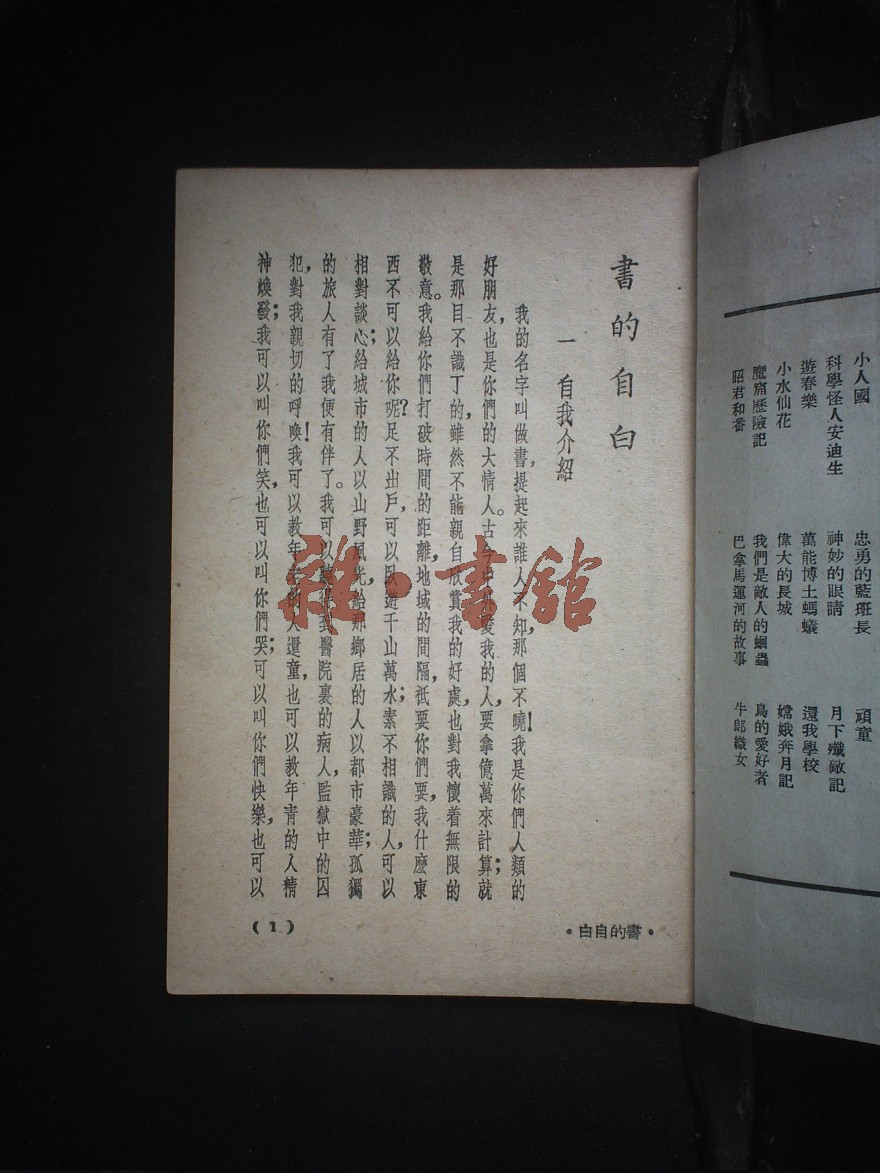 小人國 忠勇的藍班長 頑童
科學怪人安迪生 神妙的眼睛 月下殲敵記
遊春樂 萬能博士螞蟻 還我學校
小水仙花 偉大的長城 嫦娥奔月記
魔窟歷險記 我們是敵人的蛔蟲 鳥的愛好者
昭君和番 巴拿馬運河的故事 牛郎織女
書的自白
一 自我介紹
我的名字叫做書，提起來誰人不知，那個不曉！我是你們人類的
好朋友，也是你們的大情人。古今中外愛我的人，要拿億萬來計算；就
是那目不識丁的，雖然不能親自欣賞我的好處，也對我懷着無限的
敬意。我給你們打破時間的距離，地域的間隔，祇要你們要我，什麽東
西不可以給你呢？足不出戶，可以臥遊千山萬水；素不相識的人，可以
相對談心；給城市的人以山野風光，給那鄉居的人以都市豪華；孤獨
的旅人有了我便有伴了。我可以聽得到醫院裏的病人，監獄中的囚
犯，對我親切的呼喚！我可以教年老的人還童，也可以教年青的人精
神煥發；我可以叫你們笑，也可以叫你們哭；可以叫你們快樂，也可以
•書的自白•
(1)
雜·書館